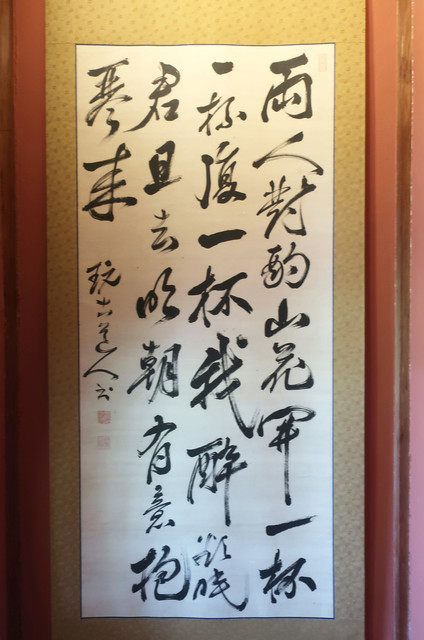 兩人對酌山花開一杯
一杯復一杯我醉欲眠
君且去明朝有意抱
琴來
玩古道人書